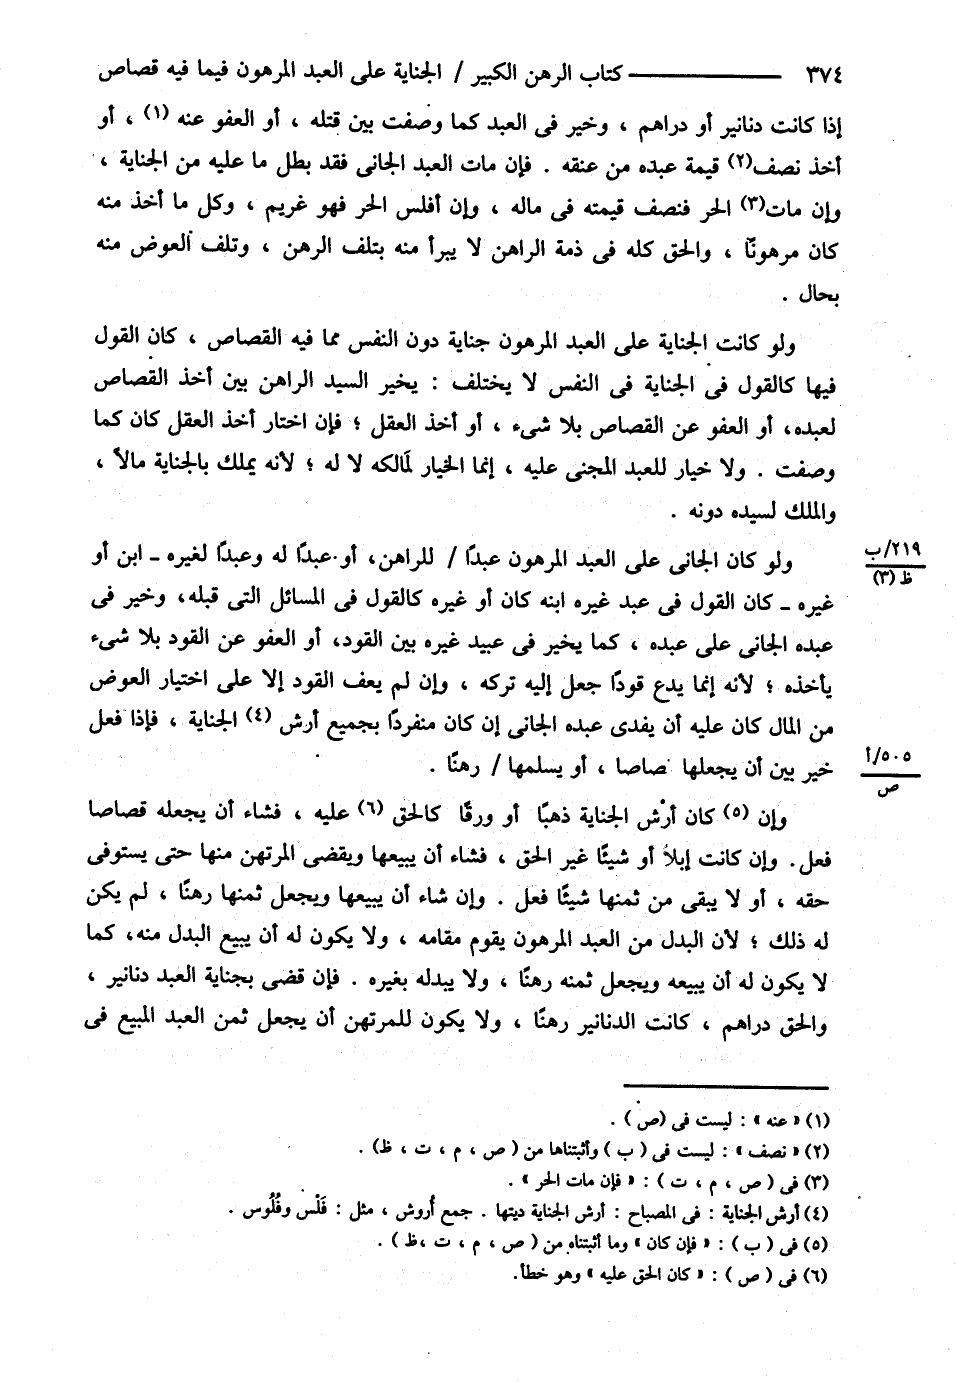 ٣٧٤ ــــــــ كتاب الرهن الكبير / الجناية على العبد المرهون فيما فيه قصاص
إذا كانت دنانير أو دراهم ، وخير فى العبد كما وصفت بين قتله ، أو العفو عنه (١) ، أو
أخذ نصف(٢) قيمة عبده من عنقه . فإن مات العبد الجانى فقد بطل ما عليه من الجناية ،
وإن مات(٣) الحر فنصف قيمته فى ماله ، وإن أفلس الحر فهو غريم ، وكل ما أخذ منه
كان مرهونًا ، والحق كله فى ذمة الراهن لا يبرأ منه بتلف الرهن ، وتلف العوض منه
بحال .
ولو كانت الجناية على العبد المرهون جناية دون النفس مما فيه القصاص ، كان القول
فيها كالقول فى الجناية فى النفس لا يختلف : يخير السيد الراهن بين أخذ القصاص
لعبده، أو العفو عن القصاص بلا شىء ، أو أخذ العقل ؛ فإن اختار أخذ العقل كان كما
وصفت . ولا خيار للعبد المجنى عليه ، إنما الخيار لمالكه لا له ؛ لأنه يملك بالجناية مالاً ،
والملك لسيده دونه .
ولو كان الجانى على العبد المرهون عبدًا / للراهن، أو عبدًا له وعبدًا لغيره ـ ابن أو
٢١٩/ب
ظ (٣)
غيره ـ كان القول فى عبد غيره ابنه كان أو غيره كالقول فى المسائل التى قبله، وخير فى
عبده الجانى على عبده ، كما يخير فى عبيد غيره بين القود، أو العفو عن القود بلا شىء
يأخذه ؛ لأنه إنما يدع قودًا جعل إليه تركه ، وإن لم يعف القود إلا على اختيار العوض
من المال كان عليه أن يفدى عبده الجانى إن كان منفردًا بجميع أرش (٤) الجناية ، فإذا فعل
خير بين أن يجعلها صاصا ، أو يسلمها / رهنًا .
٥٠٥/أ
ص
وإن (٥) كان أرْش الجناية ذهبًا أو ورقًا كالحق (٦) عليه ، فشاء أن يجعله قصاصا
فعل. وإن كانت إبلاً أو شيئًا غير الحق ، فشاء أن يبيعها ويقضى المرتهن منها حتى يستوفى
حقه ، أو لا يبقى من ثمنها شيئًا فعل . وإن شاء أن يبيعها ويجعل ثمنها رهنًا ، لم يكن
له ذلك ؛ لأن البدل من العبد المرهون يقوم مقامه ، ولا يكون له أن يبيع البدل منه، كما
لا يكون له أن يبيعه ويجعل ثمنه رهنًا ، ولا يبدله بغيره . فإن قضى بجناية العبد دنانير ،
والحق دراهم ، كانت الدنانير رهنًا ، ولا يكون للمرتهن أن يجعل ثمن العبد المبيع فى
(١) « عنه » : ليست فى (ص) .
(٢) « نصف » : ليست فى ( ب ) وأثبتناها من ( ص ، م ، ت ، ظ) .
(٣) فى ( ص ، م ، ت ) : « فإن مات الحر » .
(٤) أرش الجناية : فى المصباح : أرش الجناية ديتها . جمع أُروش ، مثل : فَلْس وفُلُوس .
(٥) فى ( ب ) : « فإن كان » وما أثبتناه من ( ص ، م ، ت ،ظ ) .
(٦) فى ( ص ) : « كان الحق عليه » وهو خطأ.